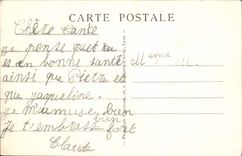 CARTE POSTALE
Chère tante
je pense que tu
es en bonne santé
Mme M.
ainsi que Pierre et
que jaqueline.
je m'amuse bien
bien
je t'embrasse fort
Claude